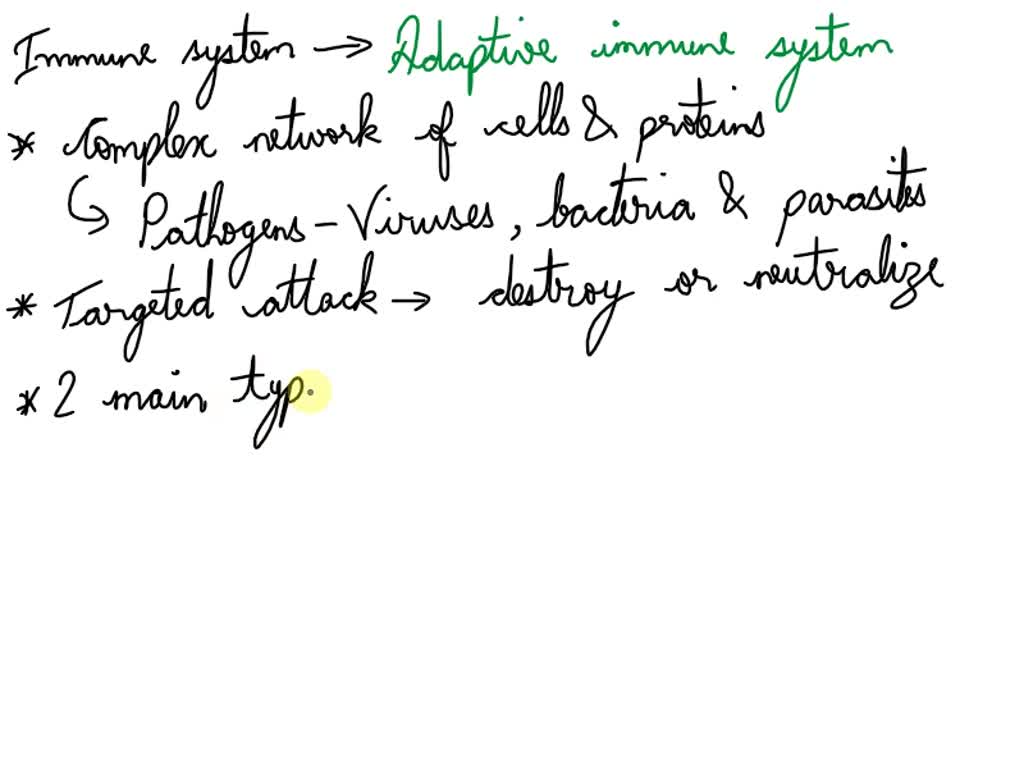 Immune system → Adaptive immune system
* Complex network of cells & proteins
↳ Pathogens - Viruses, bacteria & parasites
* Targeted attack → destroy or neutralize
* 2 main typ